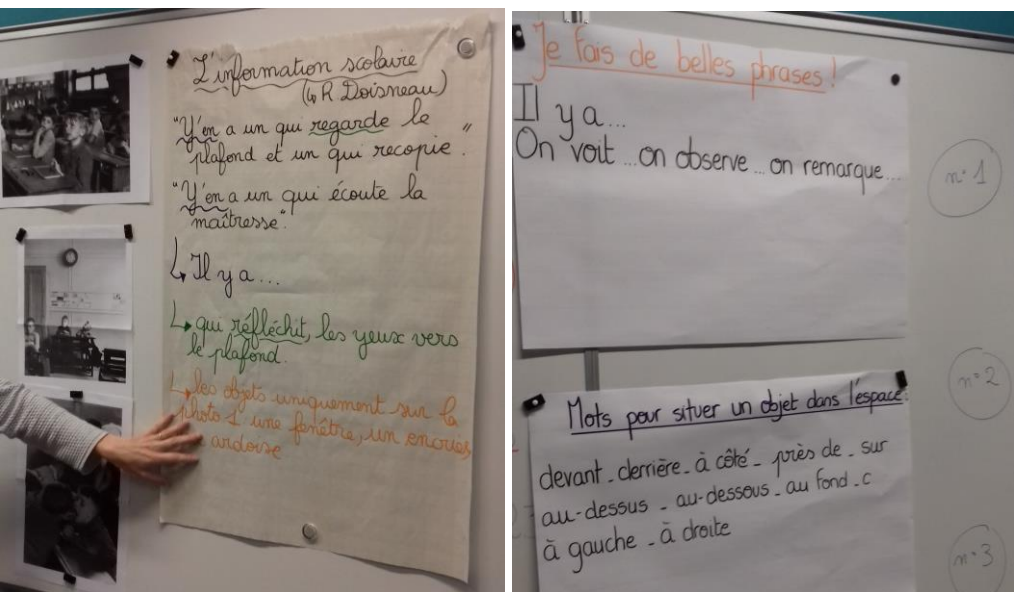 L'information scolaire
(↳ R Doisneau)
"Y'en a un qui regarde le
plafond et un qui recopie."
"Y'en a un qui écoute la
maîtresse".
↳ Il y a...
↳ qui réfléchit, les yeux vers
le plafond.
↳ les objets uniquement sur la
photo 1 une fenêtre, un encrier,
ardoise
Je fais de belles phrases !
Il y a...
On voit ... on observe ... on remarque...
n°1
n°2
Mots pour situer un objet dans l'espace :
devant - derrière - à côté - près de - sur
au-dessus - au-dessous - au fond - c
à gauche - à droite
n°3